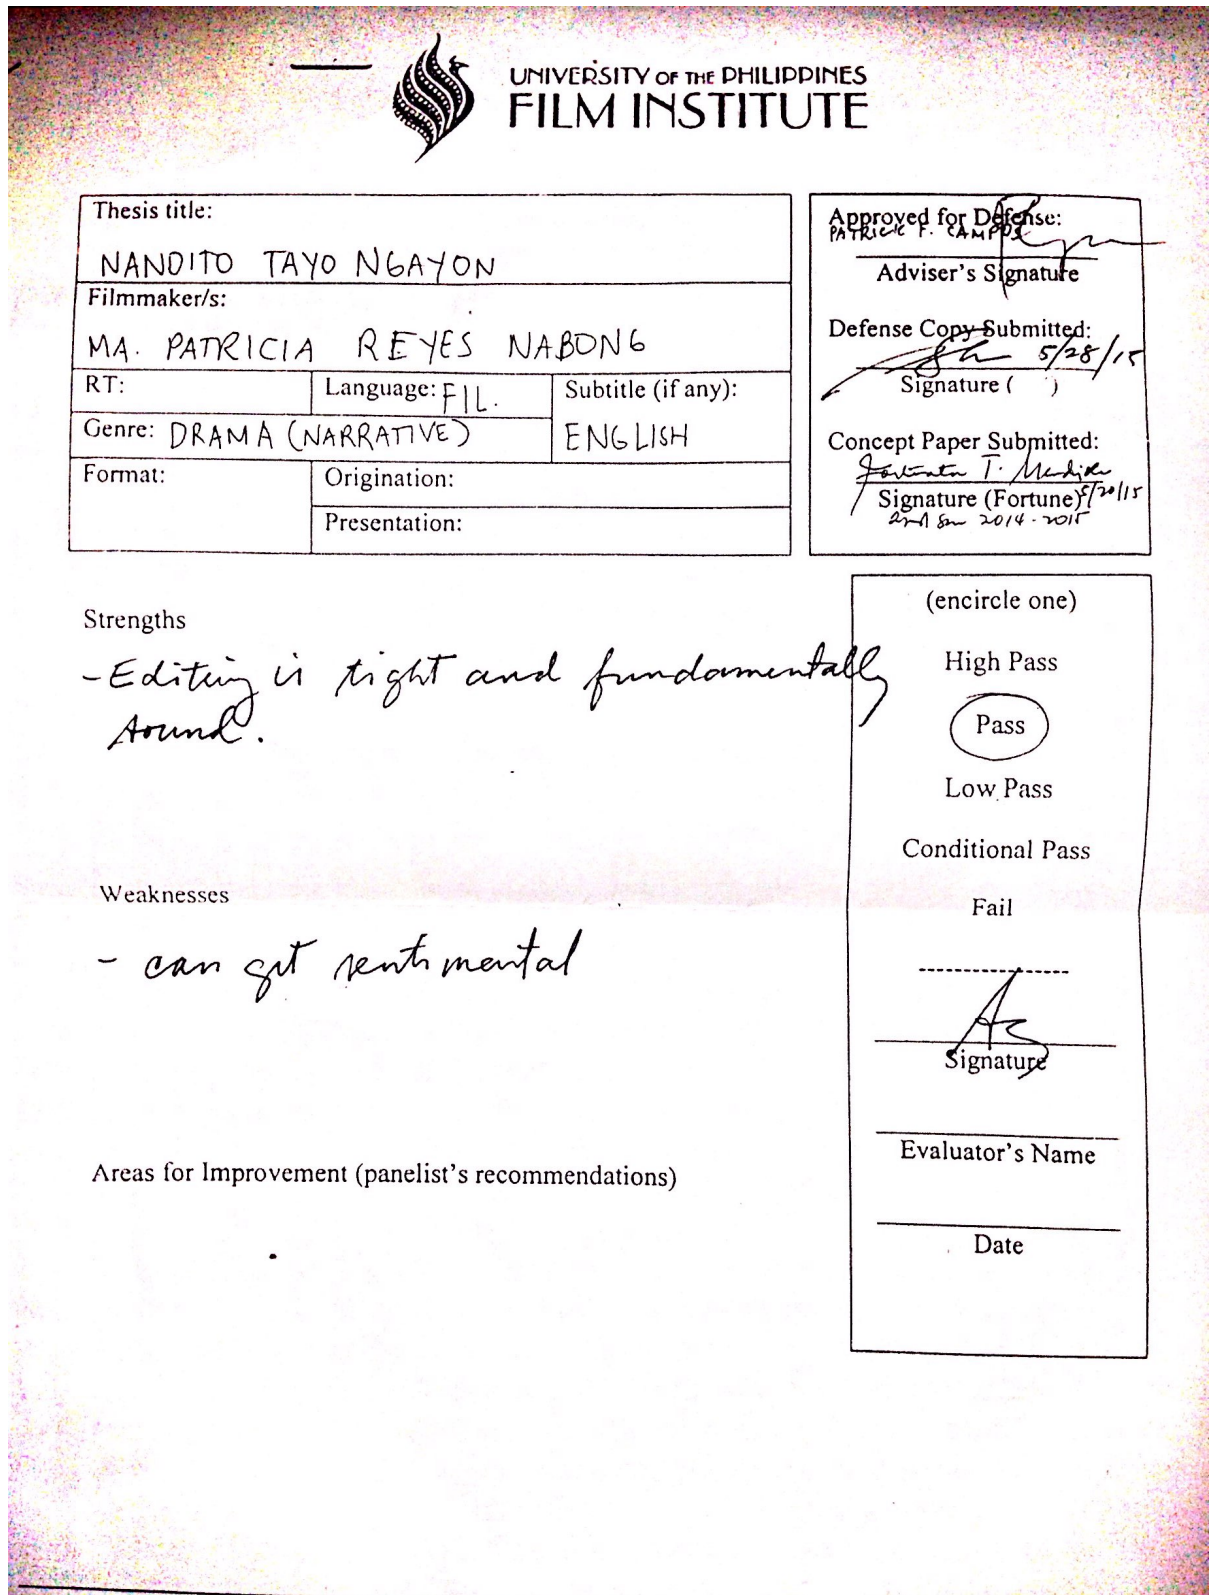 UNIVERSITY OF THE PHILIPPINES
FILM INSTITUTE
Thesis title:
NANDITO TAYO NGAYON
Filmmaker/s:
MA. PATRICIA REYES NABONG
RT:
Language: FIL.
Subtitle (if any):
ENGLISH
Genre: DRAMA (NARRATIVE)
Format:
Origination:
Presentation:
Approved for Defense:
PATRICK F. CAMPOS
Adviser's Signature
Defense Copy Submitted:
5/28/15
Signature ( )
Concept Paper Submitted:
Signature (Fortune) 5/20/15
2nd Sem 2014-2015
Strengths
- Editing is tight and fundamentally
sound.
Weaknesses
- can get sentimental
Areas for Improvement (panelist's recommendations)
(encircle one)
High Pass
Pass
Low Pass
Conditional Pass
Fail
Signature
Evaluator's Name
Date